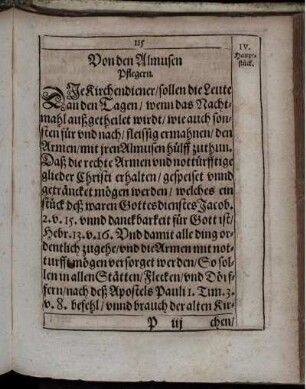 115
IV.
Haupt-
stück.
Von den Almusen
Pflegern.
DIe Kirchendiener/ sollen die Leute
an den Tagen/ wenn das Nacht-
mahl außgetheilet wirdt/ wie auch son-
sten für vnd nach/ fleissig ermahnen/ den
Armen/ mit jren Almusen hülff zuthun.
Daß die rechte Armen vnd nottürfftige
glieder Christi erhalten/ gespeiset vnnd
geträncket mögen werden/ welches ein
stück deß waren Gottesdienstes Jacob.
2. v. 15. vnnd danckbarkeit für Gott ist/
Hebr. 13. v. 16. Vnd damit alle ding or-
dentlich zugehe/ vnd die Armen mit not-
turfft mögen versorget werden/ So sol-
len in allen Stätten/ Flecken/ vnd Dörf-
fern/ nach deß Apostels Pauli 1. Tim. 3.
v. 8. befehl/ vnnd brauch der alten Kir-
P iij
chen/